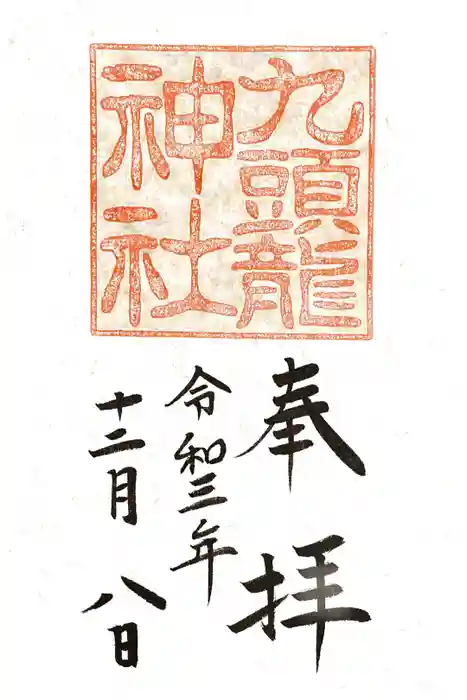 九頭龍
神社
奉拝
令和三年
十二月八日